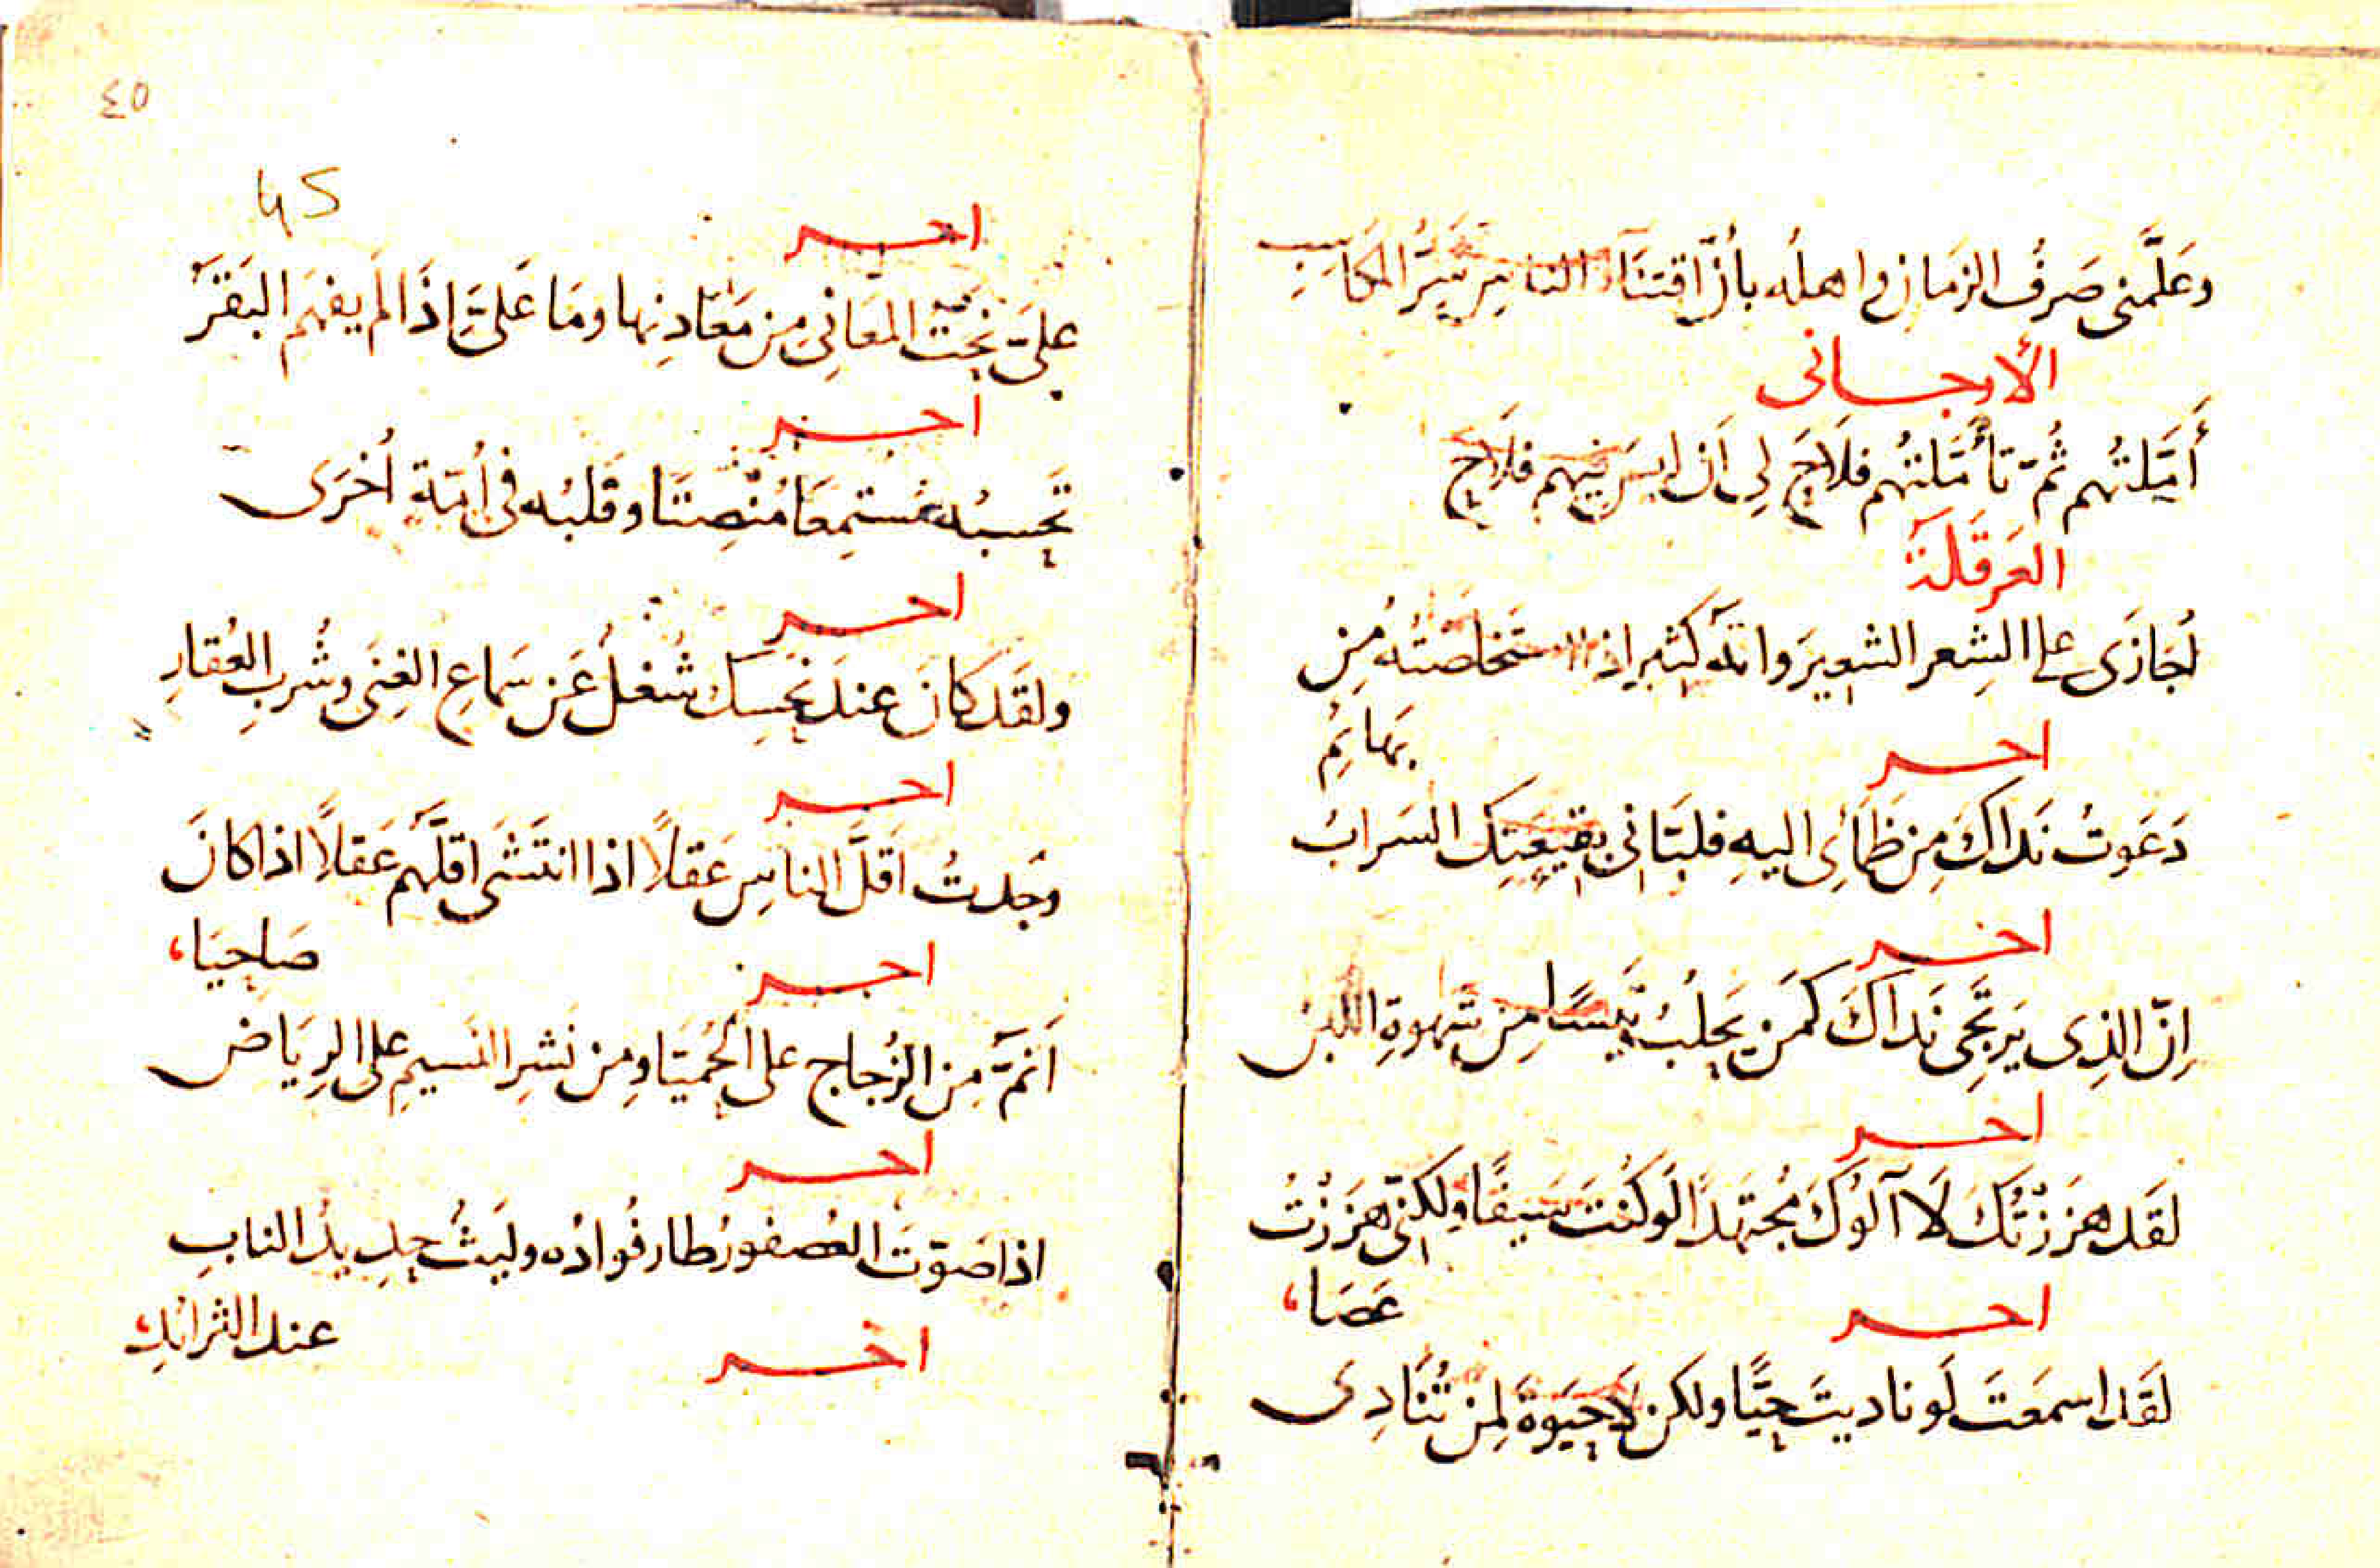 وَعَلَّمنى صَرفُ الزمَان واهلُه بأنّ اقتنَاءَ الناسِ شَرُّ المكَاسِبِ
الأرجانى
أَمَّلتُهم ثُمّ تَأَمَّلتهُم فلَاحَ لِى اَن ليسَ فيهم فلَاح
العَرقَلَة
اُجَازَى على الشِعر الشعيرَ وانّه كثير اذا استخلصتُه مِن
بهَائِم
اخر
دَعَوتُ نَداكَ مِن ظَمَائى اليهِ فلبَّانى بقيعَتِكَ السَرابُ
اخر
اِنّ الذِى يَرتَجِى نَداكَ كمَن يَحلبُ تَيسًا مِن شَهوةِ اللبن
اخر
لَقَد هزَزتُكَ لَا آلُوكَ مُجتَهدًا لَو كُنتَ سَيفًا ولكنّى هَزَزتُ
عَصَا،
اخر
لَقَد اسمَعتَ لَو ناديتَ حيًّا ولكن لَا حَيَوةَ لِمَن تُنَادِى
٤٥
45
اخر
علىَّ نَحتُ المعَانِى مِن مَعَادِنِها ومَا عَلىَّ اِذَا لَم يفهَم البَقَرُ
اخر
تَحسبُه مُستمِعًا مُنصِتًا وقَلبُه فى اُمّةٍ اُخرَى
اخر
ولقَد كانَ عندَ نَحسِكَ شُغلٌ عَن سَماعِ الغِنَى وشُربِ العُقارِ
اخر
وجَدتُ اقَلَّ الناسِ عَقلاً اذا انتَشَى اقلَّهُم عَقلاً اذا كانَ
صَاحِيَا،
اخر
اَنَمّ مِن الزُجاج على الحُمَيّا ومِن نَشرِ النَسيمِ على الرِيَاض
اخر
اذا صَوّتَ العُصفورُ طار فُوادُه وليثٌ حديدُ النابِ
عند الثرائدِ،
اخر